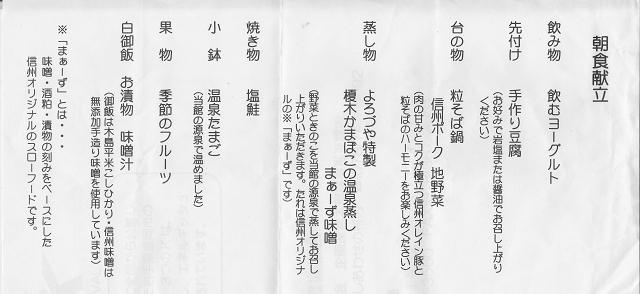 朝食献立
飲み物　飲むヨーグルト
先付け　手作り豆腐
（お好みで岩塩または醤油でお召し上がり
ください）
台の物　粒そば鍋
信州ポーク　地野菜
（肉の甘みとコクが極立つ信州オレイン豚と
粒そばのハーモニーをお楽しみください）
蒸し物　よろづや特製
榎木かまぼこの温泉蒸し
まぁーず味噌
（野菜ときのこを当館の源泉で蒸してお召し
上がりいただきます。たれは信州オリジナ
ルの※「まぁーず」です）
焼き物　塩鮭
小　鉢　温泉たまご
（当館の源泉で温めました）
果　物　季節のフルーツ
白御飯　お漬物　味噌汁
（御飯は木島平米こしひかり・信州味噌は
無添加手造り味噌を使用しています）
※「まぁーず」とは・・・
味噌・酒粕・漬物の刻みをベースにした
信州オリジナルのスローフードです。